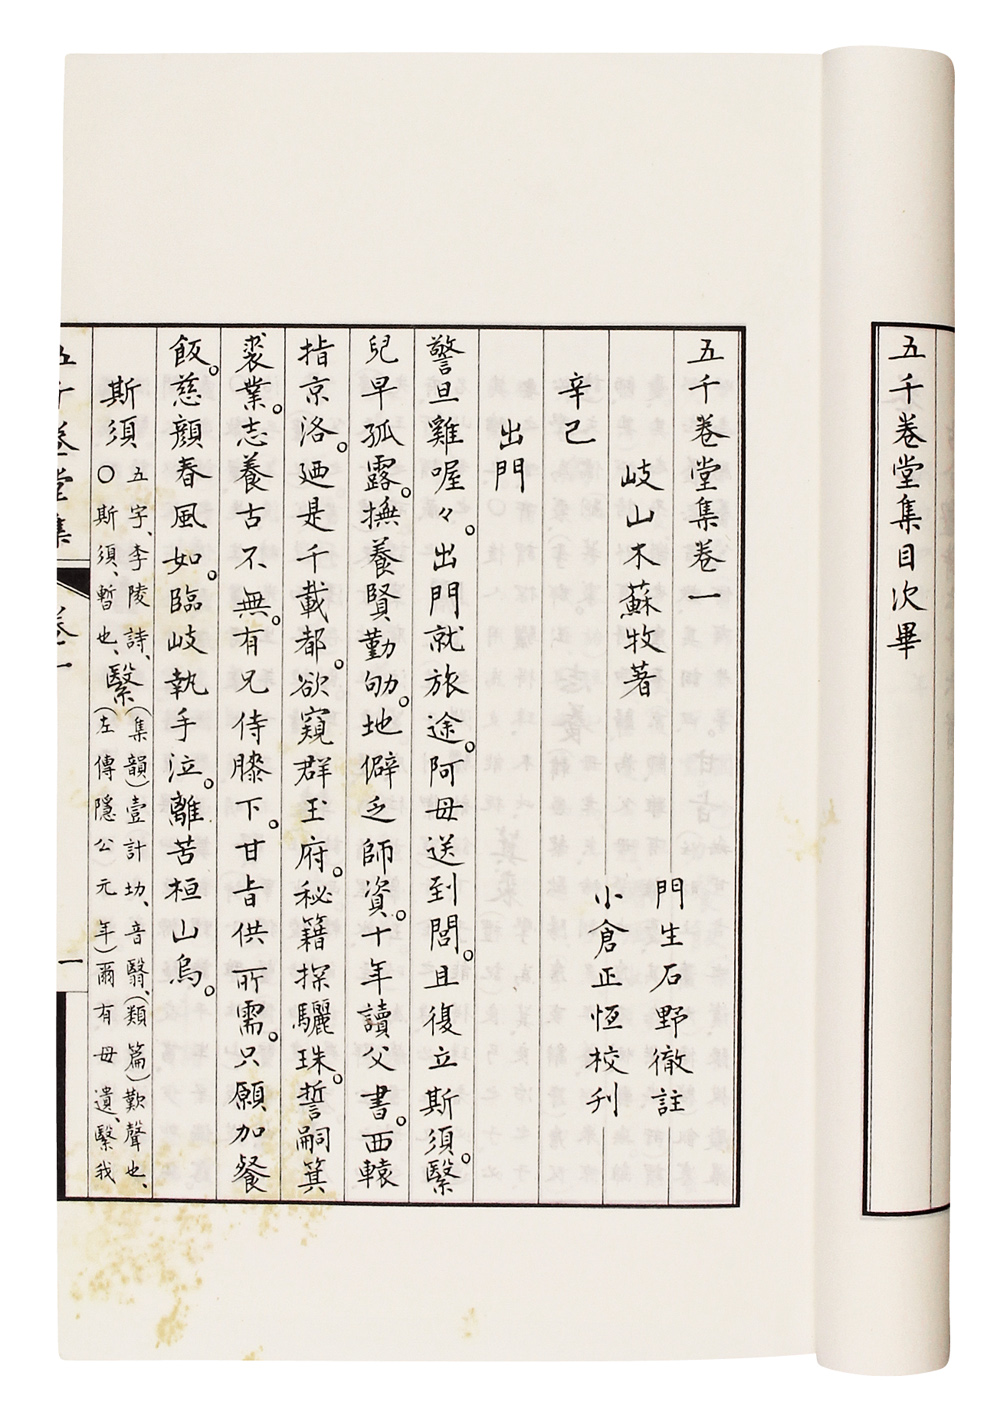 五千卷堂集目次畢
五千卷堂集卷一
岐山木蘇牧著
門生石野徹註
小倉正恆校刋
辛巳
出門
警旦雞喔々。出門就旅途。阿母送到閭。且復立斯須。繄
兒早孤露。撫養賢勤劬。地僻乏師資。十年讀父書。西轅
指京洛。迺是千載都。欲窺群玉府。秘籍探驪珠。誓嗣箕
裘業。志養古不無。有兄侍膝下。甘旨供所需。只願加餐
飯。慈顏春風如。臨岐執手泣。離苦桓山烏。
斯須
五字、李陵詩、
〇斯須、暫也、
繄
(集韻)壹計切、音翳、(類篇)歎聲也、
(左傳隱公元年)爾有母遺、繄我
五千卷堂集
卷一
一